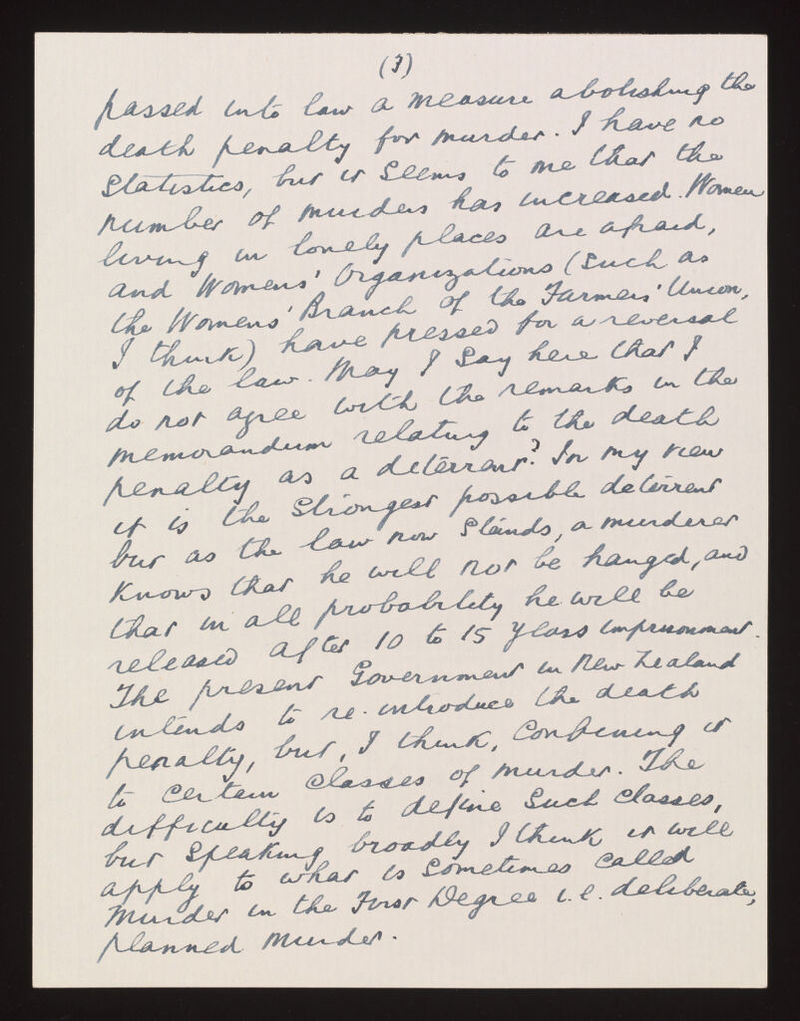 (3)
passed into law a measure abolishing the
death penalty for murder. I have no
statistics, but it seems to me that the
number of murders has increased. Women
living in lonely places are afraid,
and Womens' Organizations (such as
the Womens' Branch of the Farmers' Union,
I think) have pressed for a reversal
of the law. May I say here that I
do not agree with the remarks in the
memorandum relating to the death
penalty as a deterrent? In my view
it is the strongest possible deterrent
but as the law now stands, a murderer
knows that he will not be hanged, and
that in all probability he will be
released after 10 to 15 years imprisonment.
The present Government in New Zealand
intends to re-introduce the death
penalty, but, I think, confining it
to certain classes of murder. The
difficulty is to define such classes,
but speaking broadly I think it will
apply to what is sometimes called
Murder in the First Degree i.e. deliberate,
planned murder.